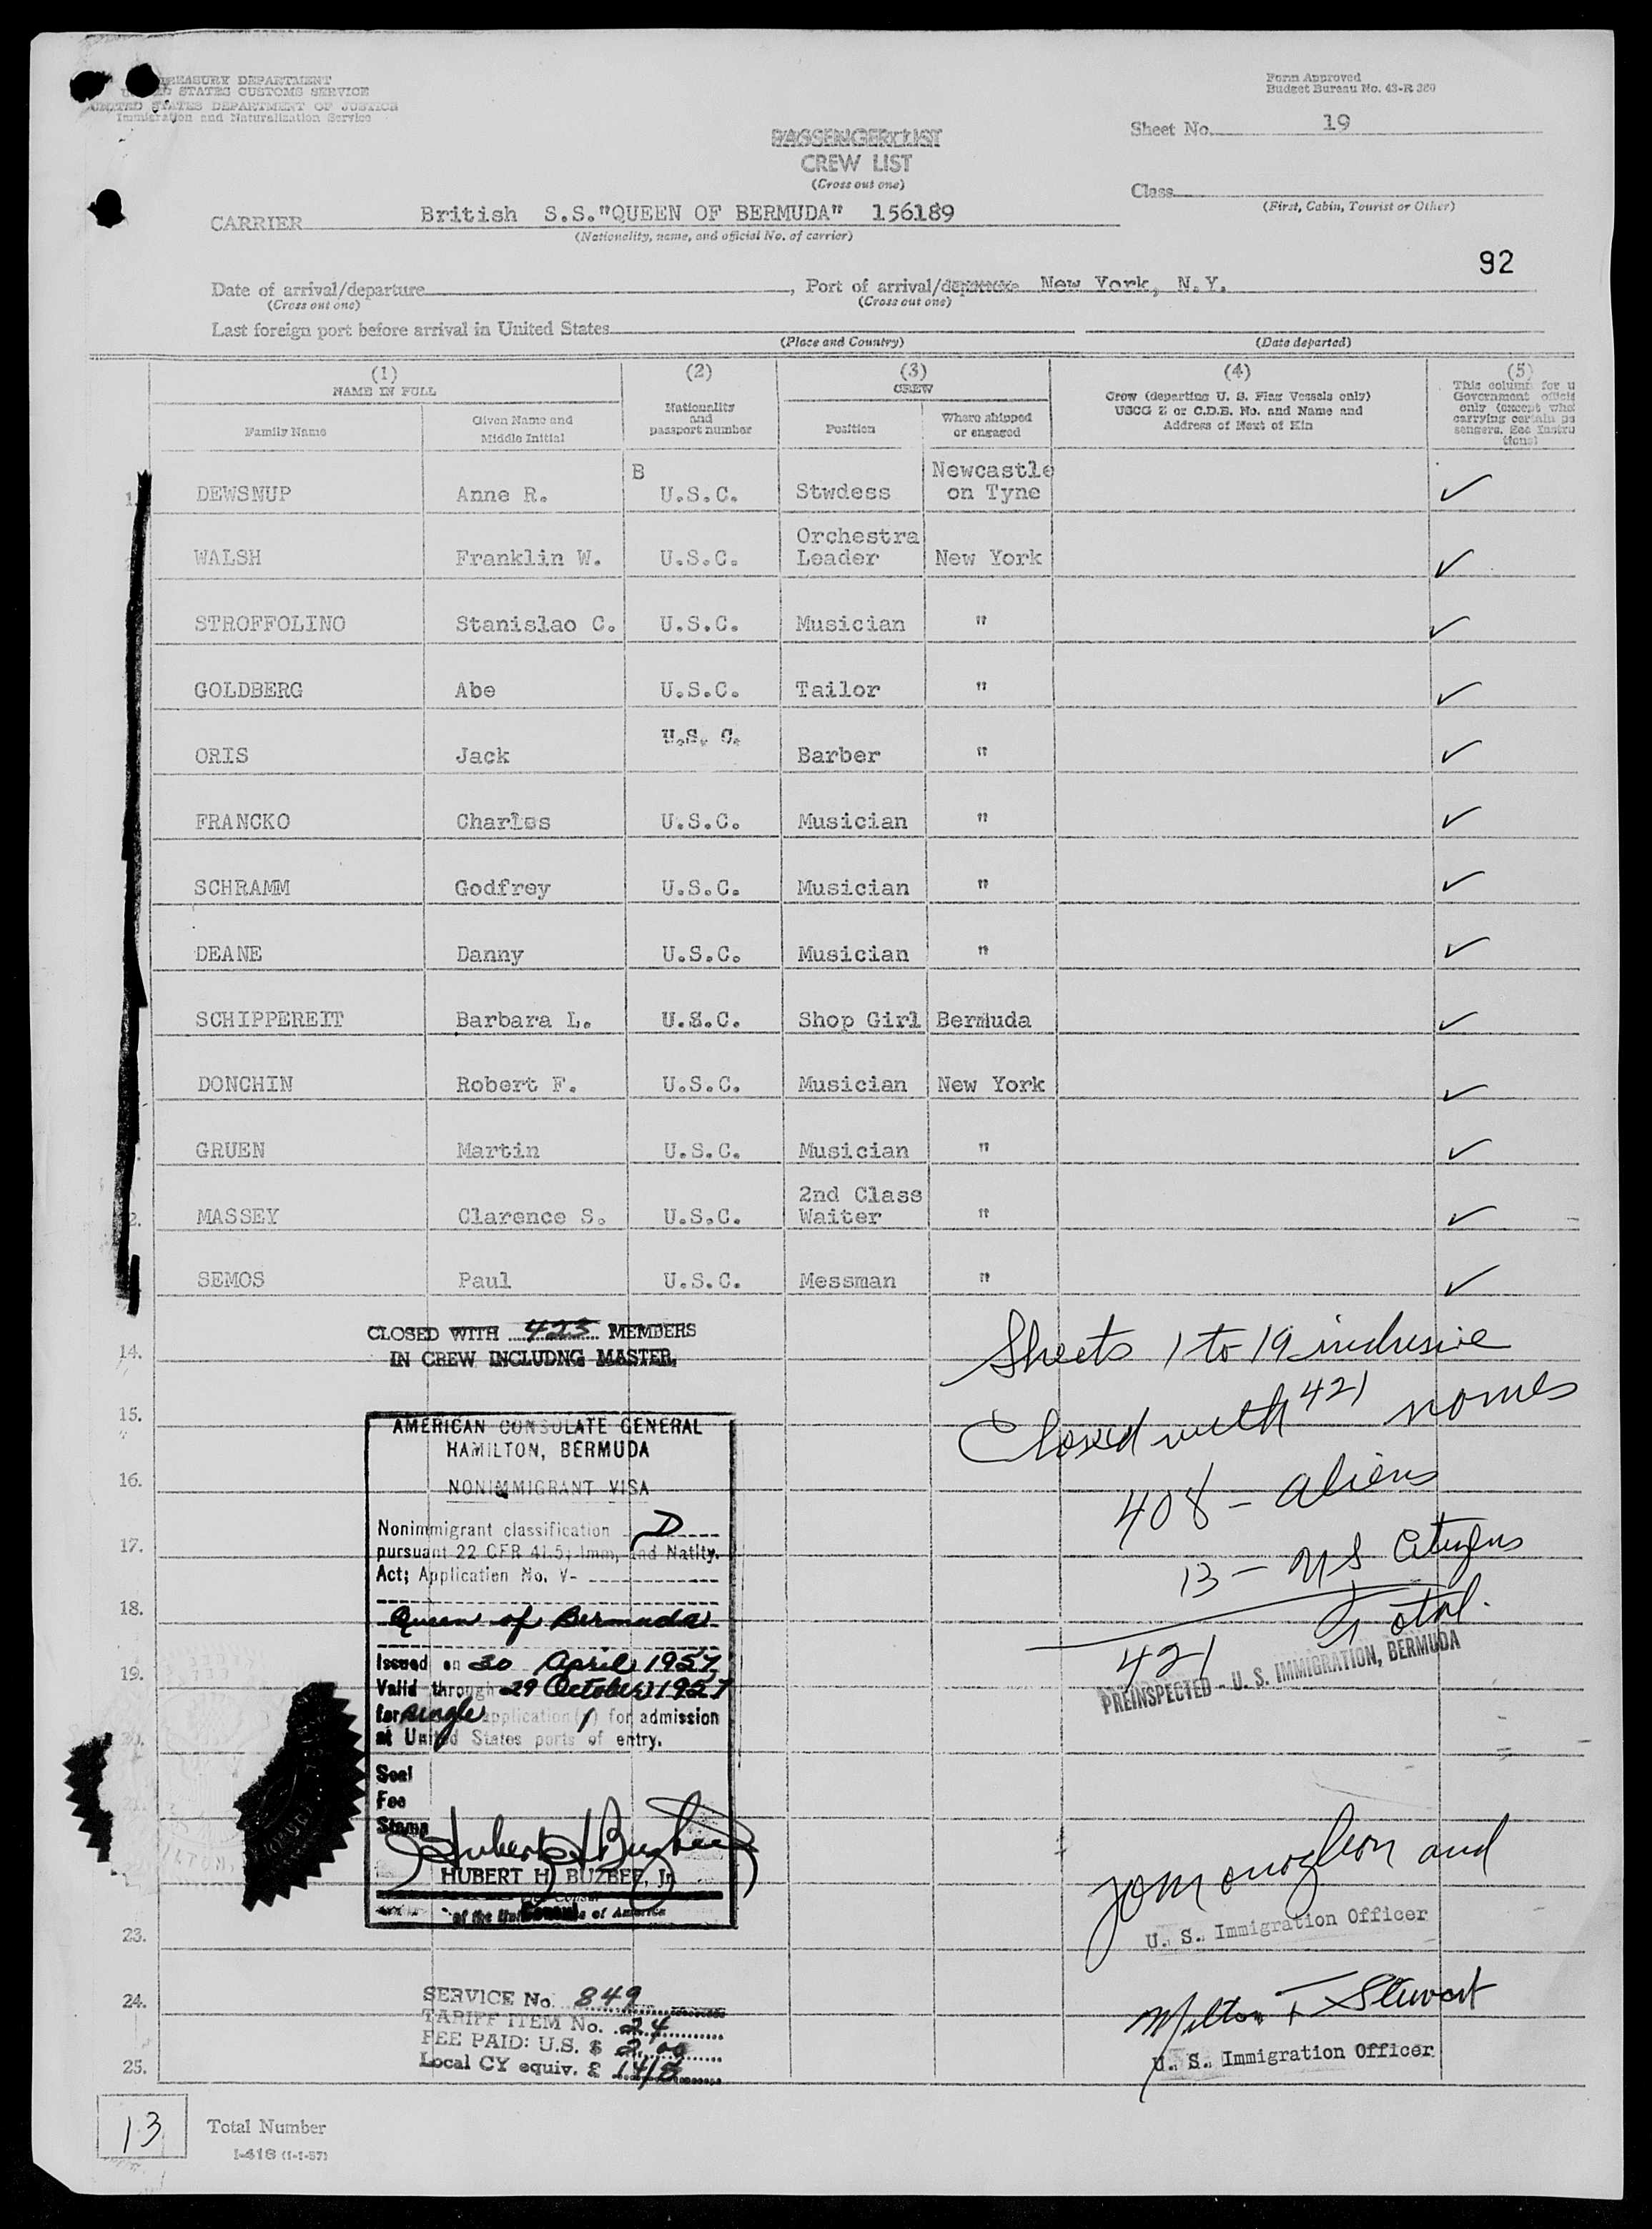 TREASURY DEPARTMENT
UNITED STATES CUSTOMS SERVICE
UNITED STATES DEPARTMENT OF JUSTICE
Immigration and Naturalization Service
Form Approved
Budget Bureau No. 43-R 380
Sheet No. 19
PASSENGER LIST
CREW LIST
(Cross out one)
Class
(First, Cabin, Tourist or Other)
CARRIER British S.S."QUEEN OF BERMUDA" 156189
(Nationality, name, and official No. of carrier)
92
Date of arrival/departure , Port of arrival/departure New York, N.Y.
(Cross out one) (Cross out one)
Last foreign port before arrival in United States
(Place and Country) (Date departed)
(1) (2) (3) (4) (5)
NAME IN FULL
Family Name
Given Name and Middle Initial
Nationality and passport number
CREW
Position
Where shipped or engaged
Crew (departing U. S. Flag Vessels only)
USCG Z or C.D.B. No. and Name and
Address of Next of Kin
This column for u
Government offici
only (except whe
carrying certain pa
sengers. See Instru
tions)
1. DEWSNUP Anne R. B U.S.C. Stwdess Newcastle on Tyne ✓
WALSH Franklin W. U.S.C. Orchestra Leader New York ✓
STROFFOLINO Stanislao C. U.S.C. Musician " ✓
GOLDBERG Abe U.S.C. Tailor " ✓
ORIS Jack U.S. C. Barber " ✓
FRANCKO Charles U.S.C. Musician " ✓
SCHRAMM Godfrey U.S.C. Musician " ✓
DEANE Danny U.S.C. Musician " ✓
SCHIPPEREIT Barbara L. U.S.C. Shop Girl Bermuda ✓
DONCHIN Robert F. U.S.C. Musician New York ✓
GRUEN Martin U.S.C. Musician " ✓
2. MASSEY Clarence S. U.S.C. 2nd Class Waiter " ✓
SEMOS Paul U.S.C. Messman " ✓
CLOSED WITH 423 MEMBERS
IN CREW INCLUDNG MASTER.
Sheets 1 to 19 inclusive
Closed with 421 names
408 - aliens
13 - US Citizens
421 Total.
PREINSPECTED - U. S. IMMIGRATION, BERMUDA
14.
15.
16.
17.
18.
19.
20.
21.
22.
23.
24.
25.
AMERICAN CONSULATE GENERAL
HAMILTON, BERMUDA
NONIMMIGRANT VISA
Nonimmigrant classification D
pursuant 22 CFR 41.5; Imm. and Natlty.
Act; Application No. V-
Queen of Bermuda
Issued on 30 April 1957
Valid through 29 October 1957
for single application(s) for admission
at United States ports of entry.
Seal
Fee
Stamp
Hubert H Buzbee Jr
HUBERT H. BUZBEE, Jr.
Vice Consul
Consul
of the United States of America
U. S. Immigration Officer
Milton F Stewart
U. S. Immigration Officer
SERVICE No. 849
TARIFF ITEM No. 24
FEE PAID: U.S. $ 2.00
Local CY equiv. £ 14/5
13
Total Number
I-418 (1-1-57)